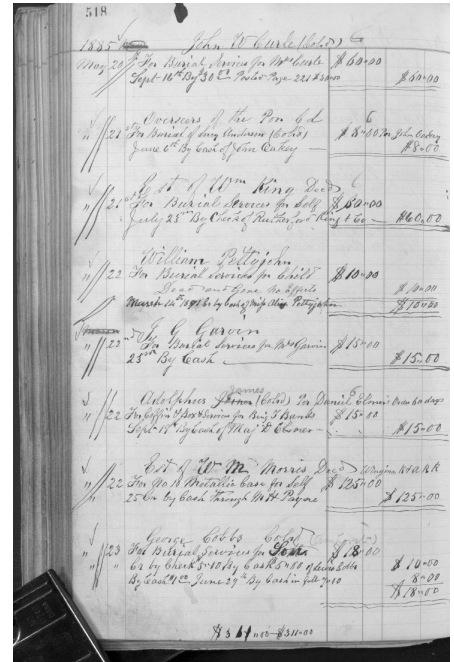 518
1885 John W Curle (Cold)
May 20 For Burial Services for Mrs Curle $60=00
Sept 16th By 30 00 Posted Page 221 $30=00 $60=00
Overseers of the Poor 6
" 21st For Burial of Lucy Anderson (Cold) $8=00 Per John Oakey
June 6th By Cash of John Oakey $8=00
Est of Wm King Decd
" 21st For Burial Services for Self $60=00
July 25th By Check of Rutherford King & Co $60=00
William Pettyjohn
" 22 For Burial Services for Child $10=00
Dead and Gone No Effects $10=00
March 14th 1891 Cr by Cash of Pettyjohn $10=00
J G Garvin
" 22nd For Burial Services for Mrs Garvin $15=00
23rd By Cash $15=00
James
Adolphus (Cold) Per Daniel 60 days
" 22 For Coffin & Box & Services for King T Banks $15=00
Sept 18th By Cash of Maj D $15=00
Est of W M Morris Decd
" 22 For No 10 Metallic Case for Self $125=00
25 Cr by Cash through M H Payne $125=00
George Cobbs Cold
" 23 For Burial Services for Son $18=00
Cr by Check 5=00 By Cash 5=00 of Cobbs $10=00
By Cash $1 00 June 29th By Cash in full 7=00 8=00
$18=00
$311=00 $311=00